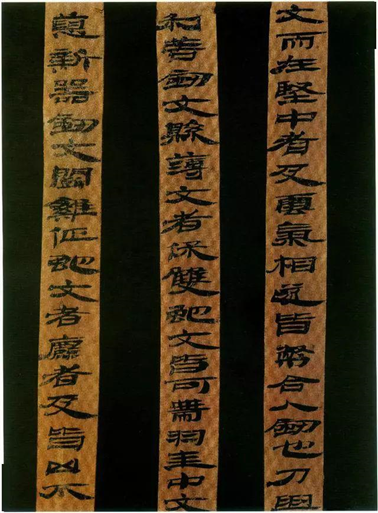 文而在堅中者及雲氣相遂皆幣合人劍也刀與
利善劍文縣薄文者保雙蛇文皆可帶羽圭中文
惡新器劍文鬥雞佂蛇文者麤者及皆凶不